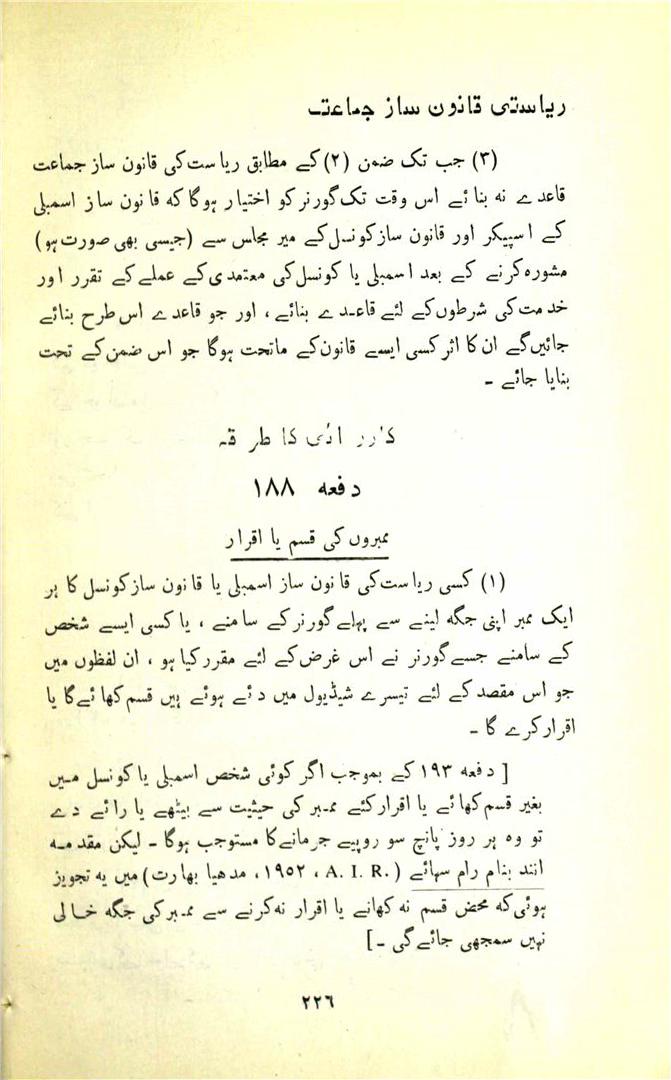 ریاستی قانون ساز جماعت
(۳) جب تک ضمن (۲) کے مطابق ریاست کی قانون ساز جماعت
قاعدے نہ بنائے اس وقت تک گورنر کو اختیار ہوگا کہ قانون ساز اسمبلی
کے اسپیکر اور قانون ساز کونسل کے میر مجلس سے (جیسی بھی صورت ہو)
مشورہ کرنے کے بعد اسمبلی یا کونسل کی معتمدی کے عملے کے تقرر اور
خدمت کی شرطوں کے لئے قاعدے بنائے ، اور جو قاعدے اس طرح بنائے
جائیں گے ان کا اثر کسی ایسے قانون کے ماتحت ہوگا جو اس ضمن کے تحت
بنایا جائے ۔
کارروائی کا طریقہ
دفعہ ۱۸۸
ممبروں کی قسم یا اقرار
(۱) کسی ریاست کی قانون ساز اسمبلی یا قانون ساز کونسل کا ہر
ایک ممبر اپنی جگہ لینے سے پہلے گورنر کے سامنے ، یا کسی ایسے شخص
کے سامنے جسے گورنر نے اس غرض کے لئے مقرر کیا ہو ، ان لفظوں میں
جو اس مقصد کے لئے تیسرے شیڈیول میں دئے ہوئے ہیں قسم کھائے گا یا
اقرار کرے گا ۔
[ دفعہ ۱۹۳ کے بموجب اگر کوئی شخص اسمبلی یا کونسل میں
بغیر قسم کھائے یا اقرار کئے ممبر کی حیثیت سے بیٹھے یا رائے دے
تو وہ ہر روز پانچ سو روپیے جرمانے کا مستوجب ہوگا ۔ لیکن مقدمہ
انند بنام رام سہائے (A. I. R. ، ۱۹۵۲، مدھیا بھارت) میں یہ تجویز
ہوئی کہ محض قسم نہ کھانے یا اقرار نہ کرنے سے ممبر کی جگہ خالی
نہیں سمجھی جائے گی ۔]
۲۲۶